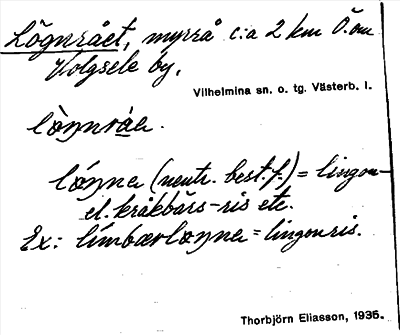 Lögnrået, myrrå c:a 2 km Ö. om
Volgsele by.
Vilhelmina sn. o. tg. Västerb. l.
lòŋnråe.
lóŋne (neutr. best. f.) = lingon-
el. kråkbärs-ris etc.
Ex: límbærloŋne = lingonris.
Thorbjörn Eliasson, 1936.